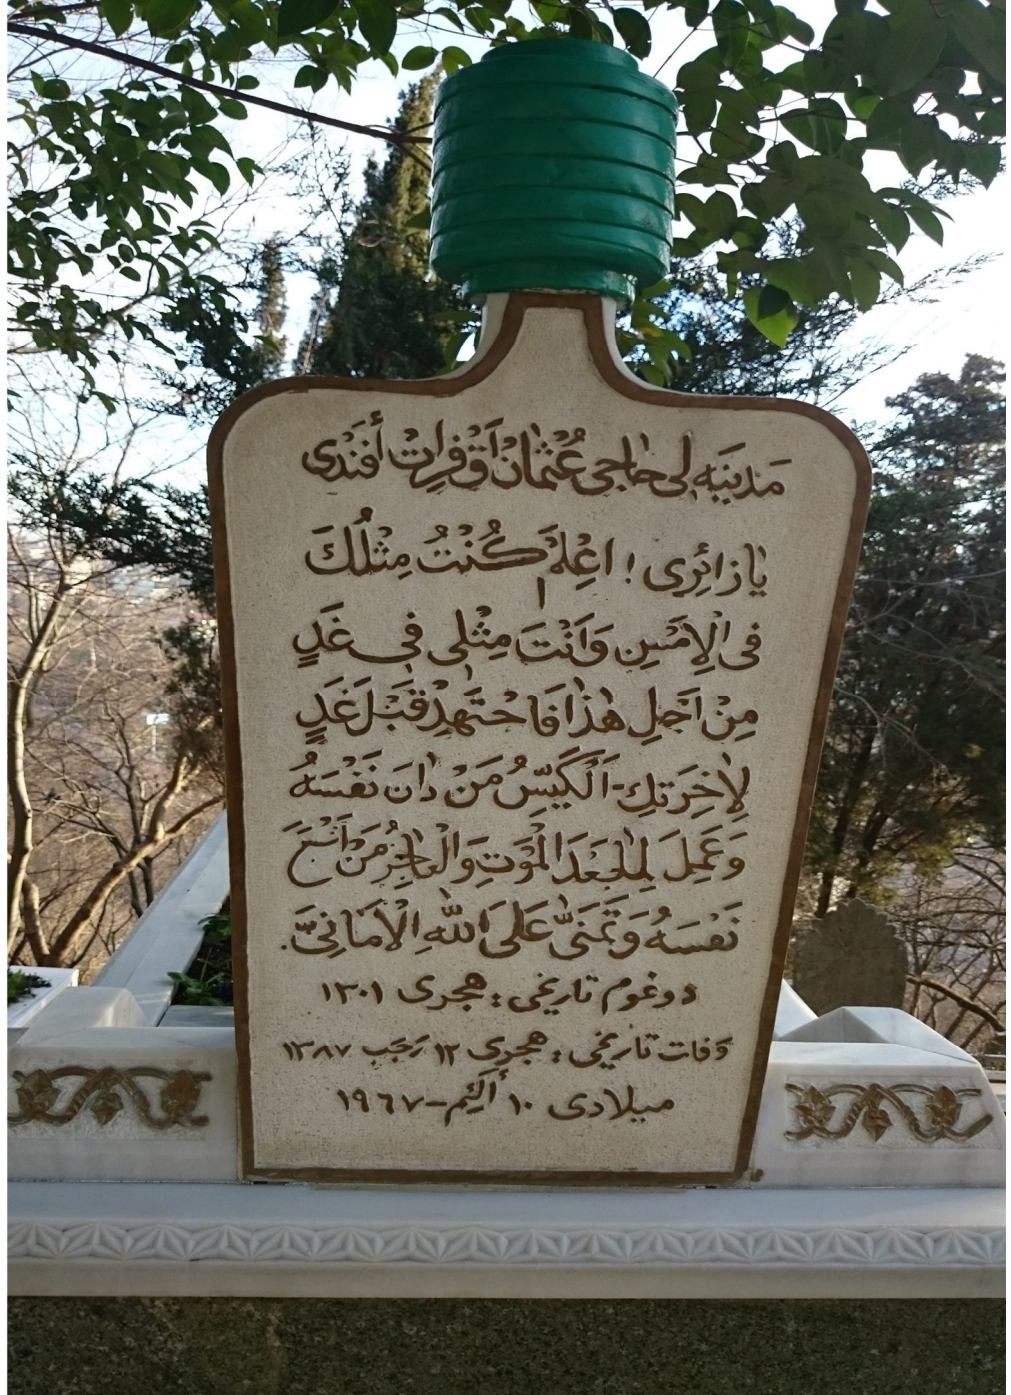 مَدينَه لى حاجى عُثْمانْ اَقْ فِراتْ أَفَنْدى
يا زائِرى ! اعْلَمْ كُنْتُ مِثْلُكَ
فى الْاِمَسِ وَاَنْتَ مِثْلى فى غَدٍ
مِنْ اَجْلِ هٰذا فَاحْتَهِدْ قَبْلَ غَدٍ
لِاٰخِرَتِكَ - اَلْكَيِّسُ مَنْ دانَ نَفْسَهُ
وَعَمِلَ لِمابَعْدَ الْمَوْتِ وَالْعاجِزُ مَنْ اَتْبَعَ
نَفْسَهُ وَتَمَنّى عَلَى اللّٰهِ الْاَمانِىَّ.
دوغوم تاريخى : هجرى ١٣٠١
وَفات تاريخى : هجرى ١٢ رَجَب ١٣٨٧
ميلادى ١٠ أكيم - ١٩٦٧